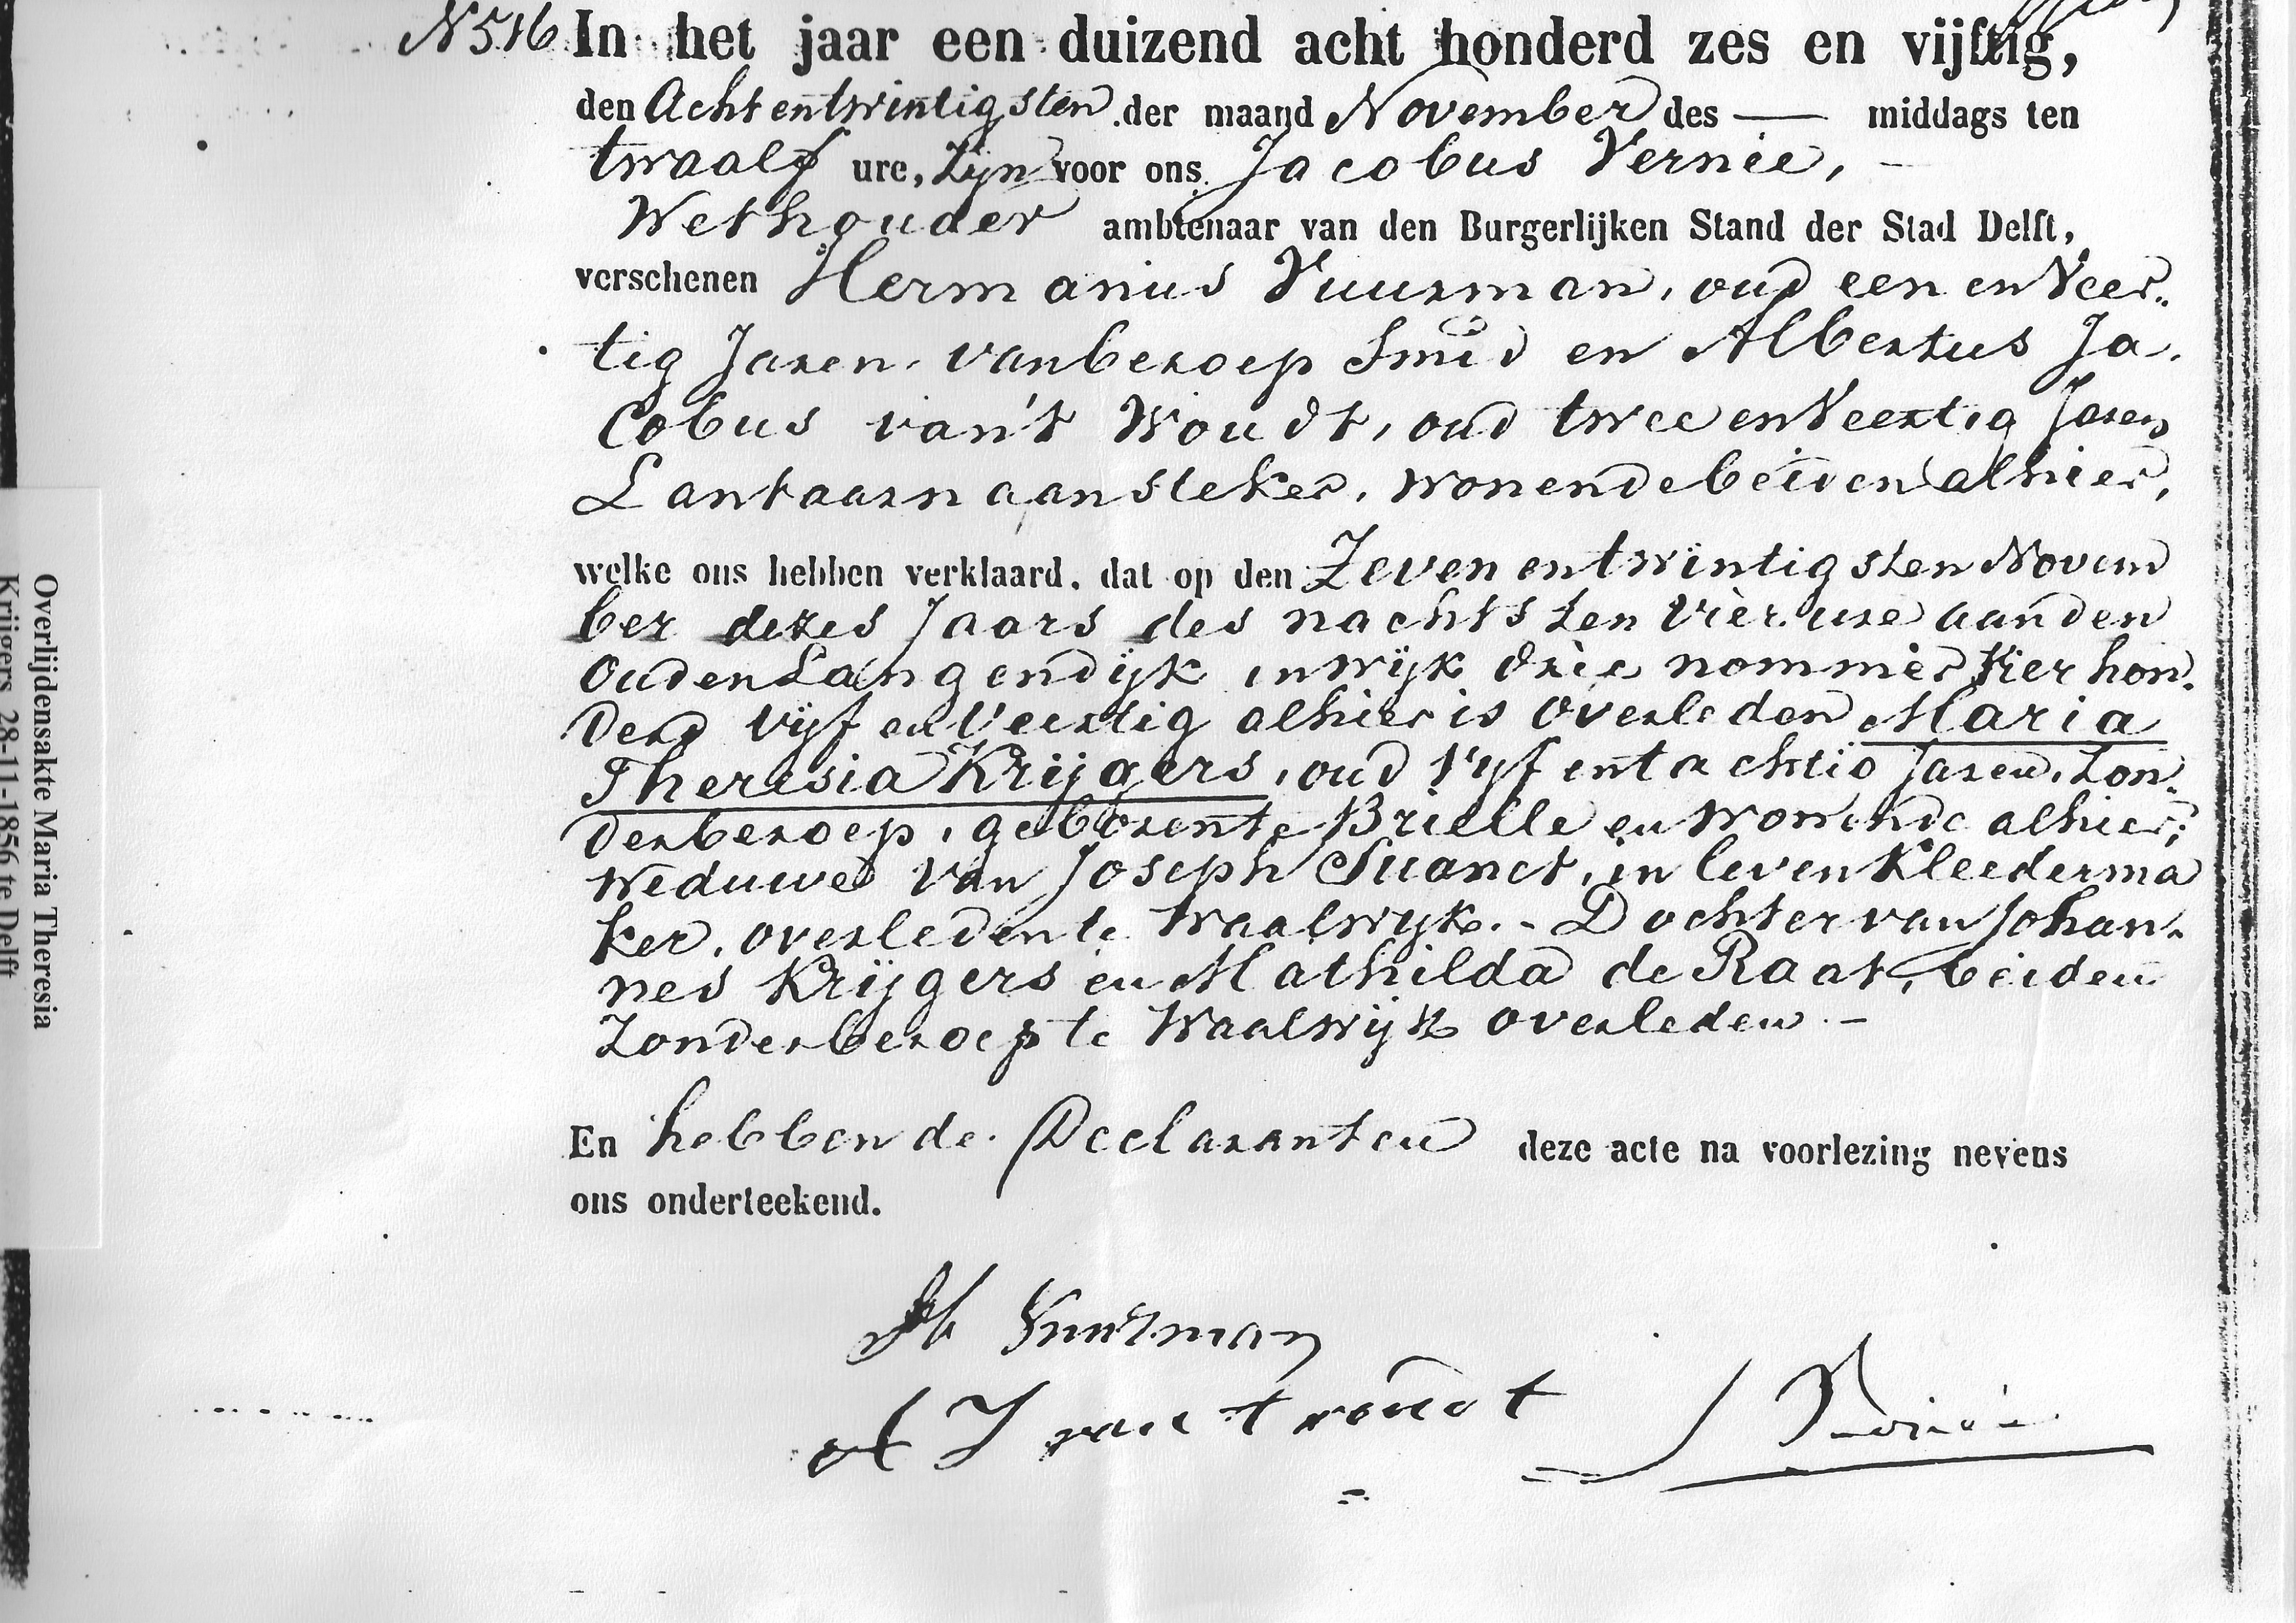 N 516 In het jaar een duizend acht honderd zes en vijftig,
den Acht en twintigsten der maand November des — middags ten
twaalf ure, Zyn voor ons Jacobus Vernèe, -
Wethouder ambtenaar van den Burgerlijken Stand der Stad Delft,
verschenen Hermanus Vuurman, oud een en Veer-
tig Jaren, van beroep Smid en Albertus Ja-
cobus van 't Woudt, oud twee en Veertig Jaren
Lantaarnaansteker, wonende beiden alhier,
welke ons hebben verklaard, dat op den Zeven en twintigsten Novem
ber dezes Jaars des nachts ten vier ure aan den
Ouden Langendijk in wijk drie nommer Vier hon-
derd vijf en Veertig alhier is overleden Maria
Theresia Krijgers, oud Vyf en tachtig Jaren, Zon-
der beroep, geboren te Brielle en wonende alhier;
Weduwe van Joseph Suanet, in leven Kleederma
ker, overleden te Waalwyk. - Dochter van Johan-
nes Krijgers en Mathilda de Raat, beiden
Zonder beroep te Waalwijk overleden -
En hebben de Declaranten deze acte na voorlezing nevens
ons onderteekend.
H Vuurman
A J van t woudt
J Vernèe
Overlijdensakte Maria Theresia
Krijgers 28-11-1856 te Delft